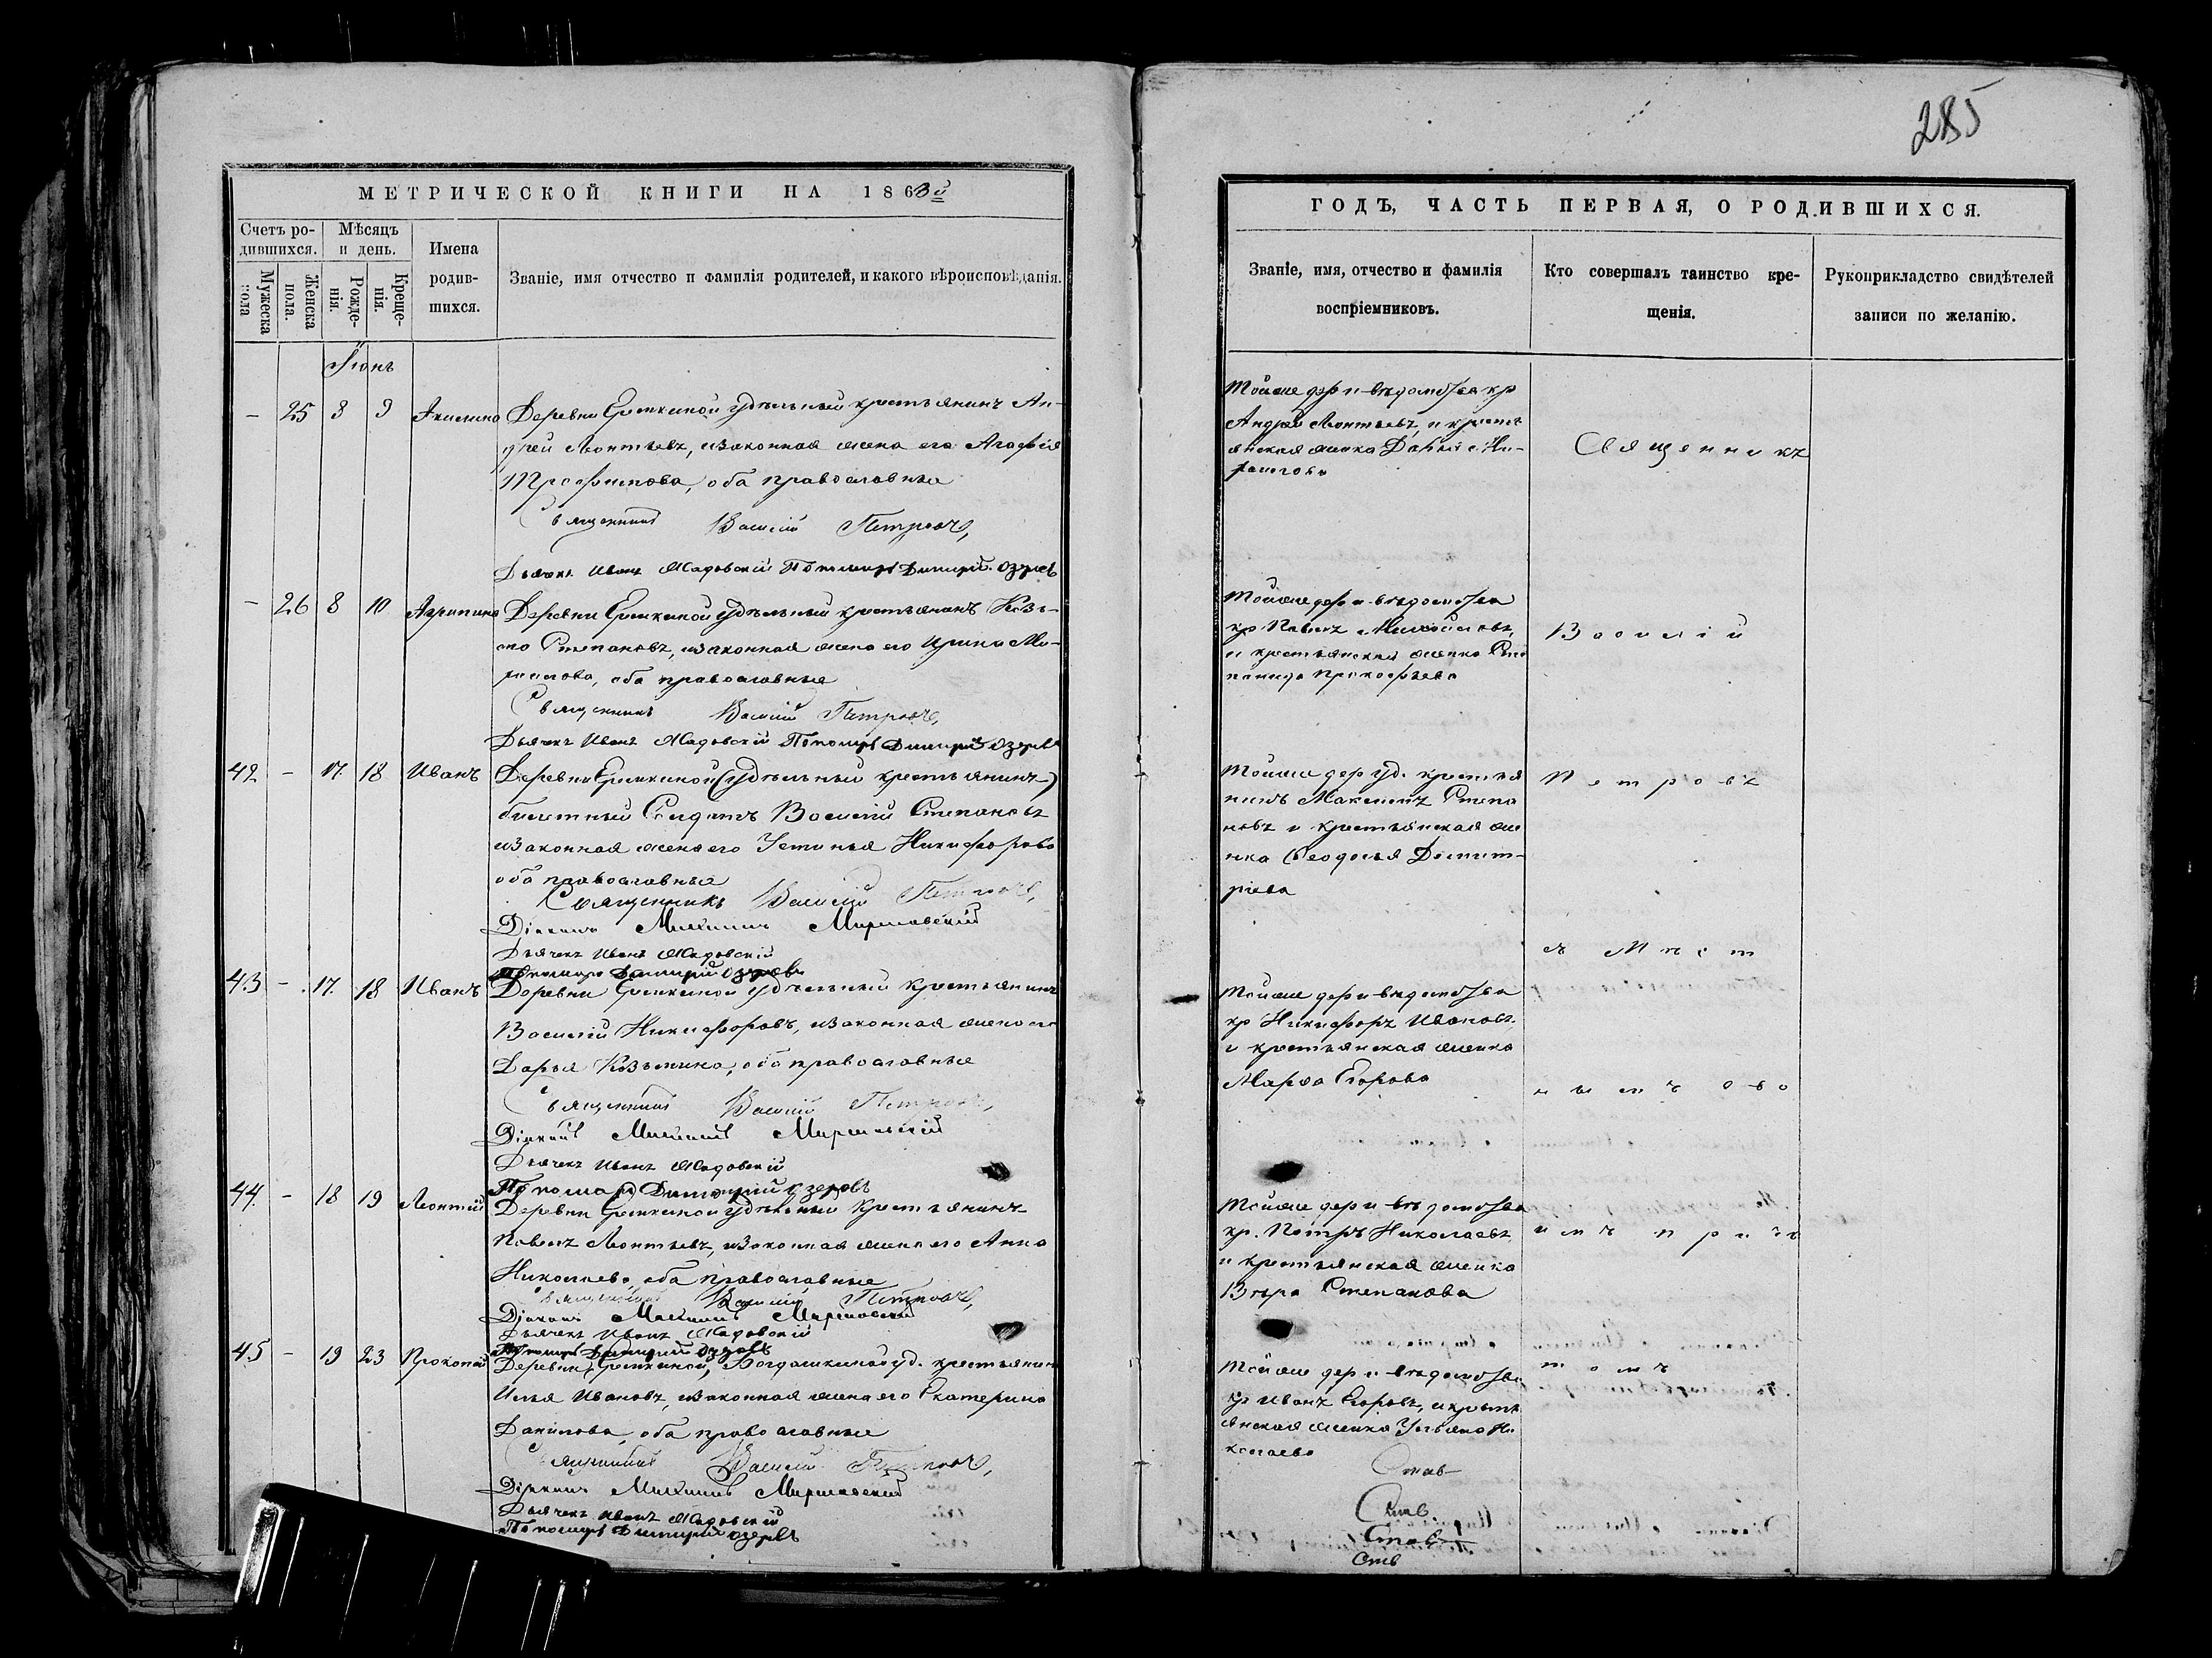 285
МЕТРИЧЕСКОЙ КНИГИ НА 1863й
Счетъ ро-
дившихся.
Мѣсяцъ
и день.
Имена
родив-
шихся.
Званіе, имя отчество и фамилія родителей, и какого вѣроисповѣданія.
Мужеска
пола
Женска
пола.
Рожде-
нія.
Креще-
нія.
Іюнь
— 25 8 9 Акилина Деревни удѣльный крестьянинъ Ан-
дрей Леонтьевъ, и законная жена его Агафія
Трофимова, оба православные
Священникъ Василій Петровъ,
Дьячекъ Иванъ Жадовскій Пономарь Димитрій Озеровъ
— 26 8 10 Агрипина Деревни удѣльный крестьянинъ Козь-
ма Степановъ, и законная жена его Ирина Ми-
хайлова, оба православные
Священникъ Василій Петровъ,
Дьячекъ Иванъ Жадовскій Пономарь Димитрій Озеровъ
42 — 17. 18 Иванъ Деревни (удѣльный крестьянинъ)
билетный Солдатъ Василій Степановъ
и законная жена его Устинья Никифорова
оба православные
Священникъ Василій Петровъ,
Діаконъ Михаилъ
Дьячекъ Иванъ Жадовскій
Пономарь Димитрій Озеровъ
43 — 17. 18 Иванъ Деревни удѣльный крестьянинъ
Василій Никифоровъ, и законная жена его
Дарья Козьмина, оба православные
Священникъ Василій Петровъ,
Діаконъ Михаилъ
Дьячекъ Иванъ Жадовскій
Пономарь Димитрій Озеровъ
44. — 18 19 Леонтій Деревни удѣльный крестьянинъ
Павелъ Леонтьевъ, и законная жена его Анна
Николаева, оба православные
Священникъ Василій Петровъ,
Діаконъ Михаилъ
Дьячекъ Иванъ Жадовскій
Пономарь Димитрій Озеровъ
45 — 19 23 Прокопій Деревни уд. крестьянинъ
Илья Ивановъ, и законная жена его Екатерина
Данилова, оба православные
Священникъ Василій Петровъ,
Діаконъ Михаилъ
Дьячекъ Иванъ Жадовскій
Пономарь Димитрій Озеровъ
ГОДЪ, ЧАСТЬ ПЕРВАЯ, О РОДИВШИХСЯ.
Званіе, имя, отчество и фамилія
воспріемниковъ.
Кто совершалъ таинство кре-
щенія.
Рукоприкладство свидѣтелей
записи по желанію.
Тойже дер и вѣдомства кр
Андрей Леонтьевъ, и кресть
янская женка Дарья
Тойже дер и вѣдомства
кр. Павелъ Михайловъ,
и крестьянская женка Сте
панида Прокофьева
Тойже дер уд. крестья
нинъ Максимъ Степа
новъ и крестьянская же
нка Ѳеодосья Димит-
ріева
Тойже дер и вѣдомства
кр Никифоръ Ивановъ
и крестьянская женка
Марѳа Егорова
Тойже дер и вѣдомства
кр. Петръ Николаевъ
и крестьянская женка
Вѣра Степанова
Тойже дер и вѣдомства
кр Иванъ Егоровъ, и кресть
янская женка Ульяна Ни
колаева
Священникъ
Василій
Петровъ
съ Мѣст
нымъ сво
имъ прич
томъ